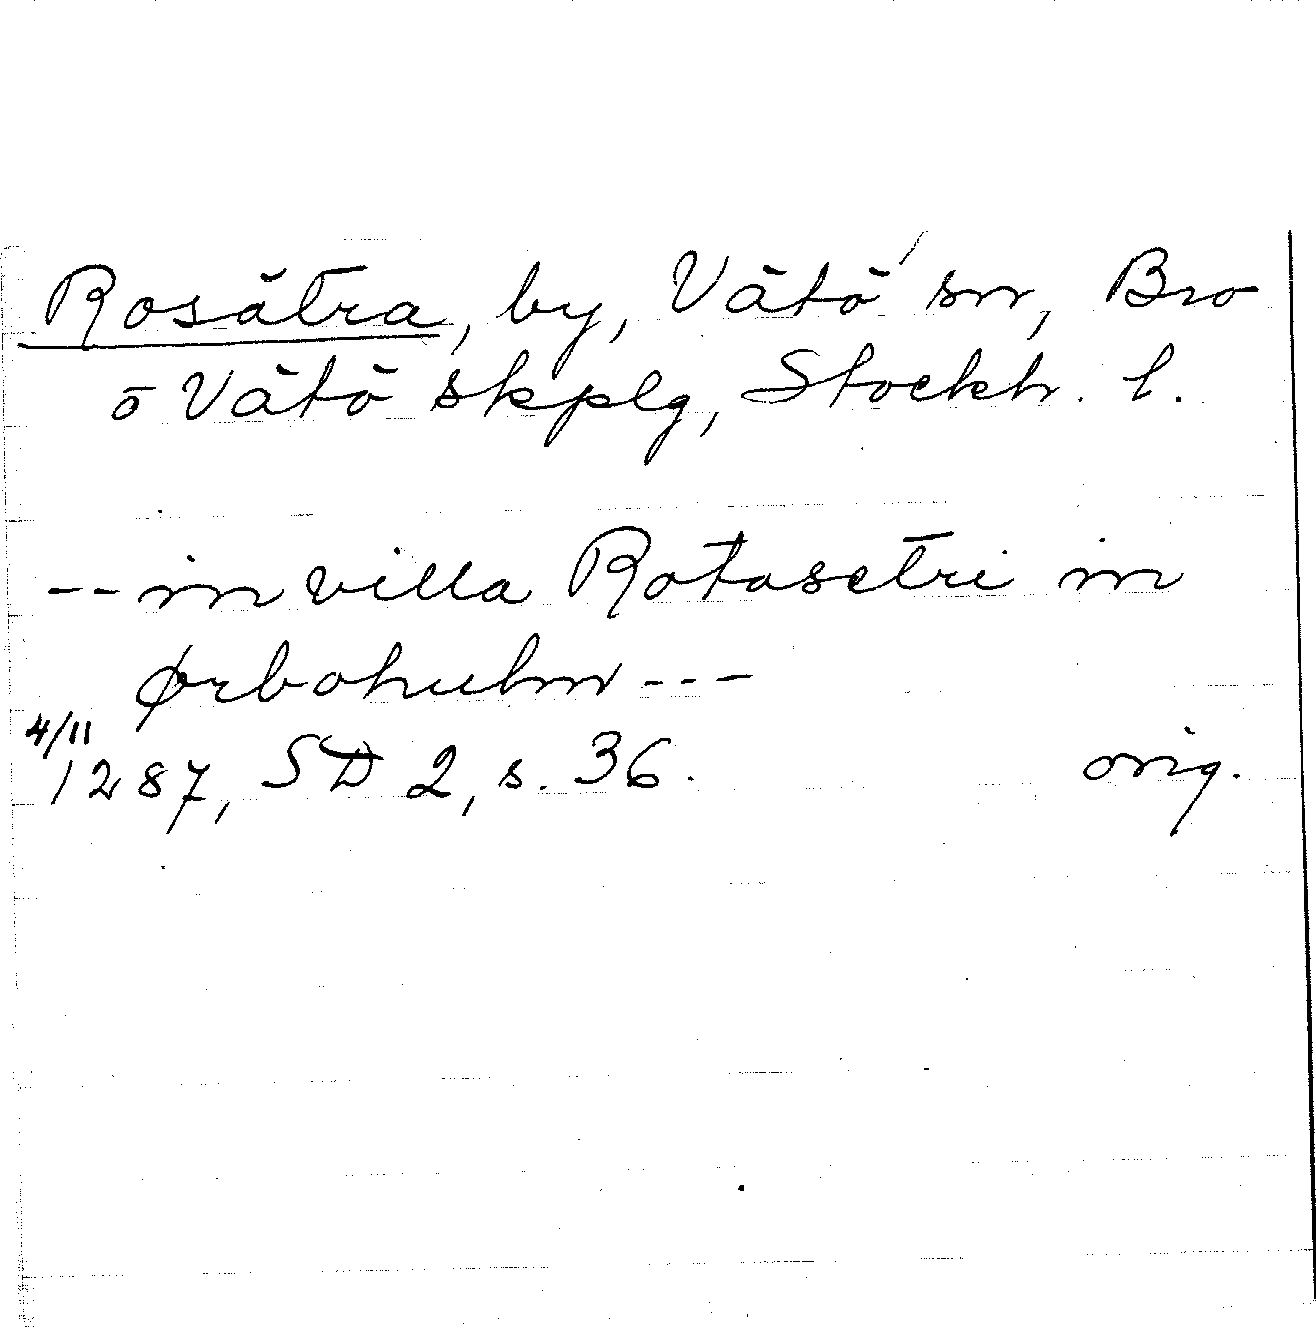 Rosätra, by, Vätö sn, Bro
o Vätö skplg, Stockh. l.
-- in villa Rotasetri in
ørbohulm ---
4/11
1287, SD 2, s. 36. orig.